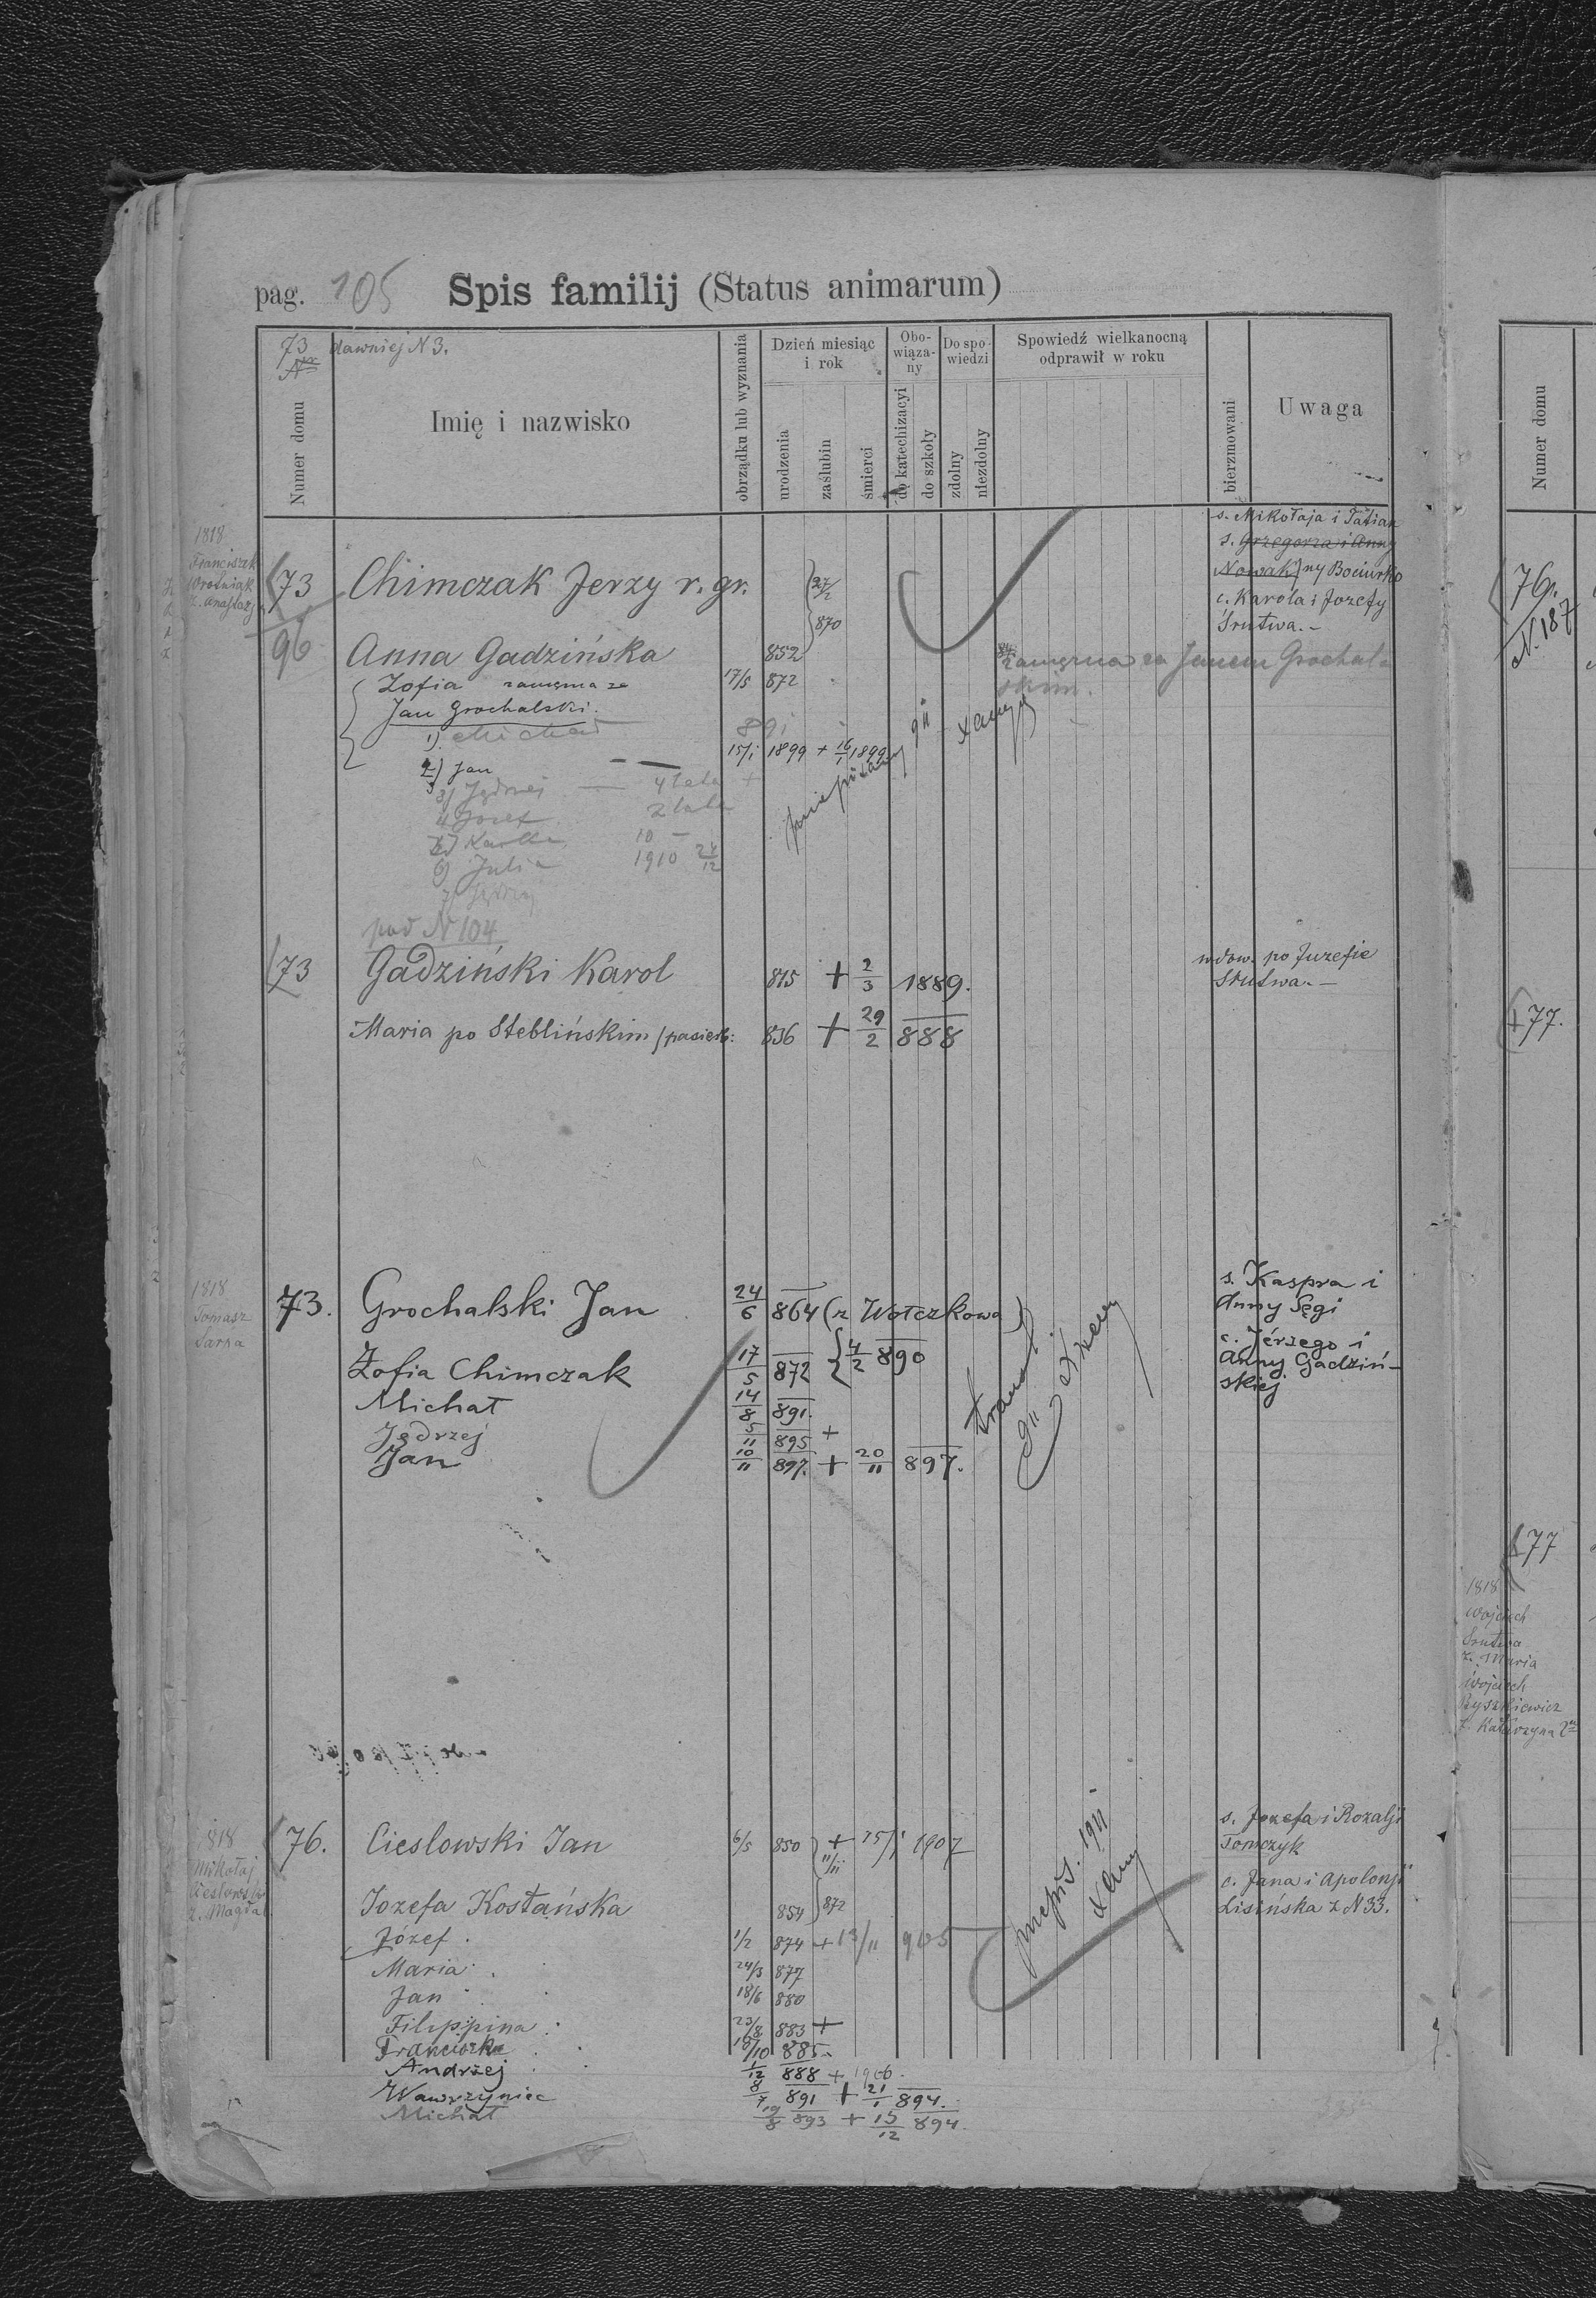 pag. 105 Spis familij (Status animarum)
73 dawniej N 3.
Numer domu
Imię i nazwisko
obrządku lub wyznania
Dzień miesiąc i rok
urodzenia
zaślubin
śmierci
Obowiązany
do katechizacyi
do szkoły
Do spowiedzi
zdolny
niezdolny
Spowiedź wielkanocną odprawił w roku
bierzmowani
Uwaga
1818
Franciszek
z. Anastazj
73 Chimczak Jerzy r. gr. 27/2 870
s. Mikołaja i Tatian
s. Grzegorza i Anny
Nowak / ny Bociurko
c. Karola i Jozefy
Srutwa.-
96 Anna Gadzińska 852
zamężna za Janem Grochalskim.
Zofia zamężna ze 17/5 872
Jan Grochalski.
1) Michał 891
2) Jan 15/1 1899 + 16/1 1899
3) Jędrzej 4 lata +
4 Jozef 2 lata
10 -
6) Julia 1910 24/12
pod N 104
73 Gadziński Karol 815 + 2/3 1889.
wdow. po Juzefie
Srutwa.-
Maria po Steblińskim / pasierb: 836 + 29/2 888
1818
Tomasz
73. Grochalski Jan 24/6 864 (z Wołczkowa
s. Kaspra i
Anny Sęgi
Zofia Chimczak 17/5 872 { 4/2 890
c. Jérzego i
Anny Gadziń-
skiej
Michał 14/8 891.
Jędrzej 5/11 895 +
Jan 10/11 897. + 20/11 897.
818
Mikołaj
z. Magdal
76. Cieslowski Jan 6/5 850 + 15/1 1907
11/11 872
s. Jozefa i Rozalji
Tomczyk
Jozefa Kostańska 854
c. Jana i Apolonji
Lisińska z N 33.
przepis. 1911
Józef. 1/2 874 + 13/11 905
Maria 24/3 877
Jan 18/6 880
Filippina 23/8 883 +
Franciszka 10/10 885
Andrzej 1/12 888 + 1906.
Wawrzyniec 8/7 891 + 21/1 894.
Michał 19/8 893 + 15/12 894.
Numer domu
76.
N. 187
77.
77
1818
Wojciech
Srutwa
z. Maria
Wojciech
Ryszkiewicz